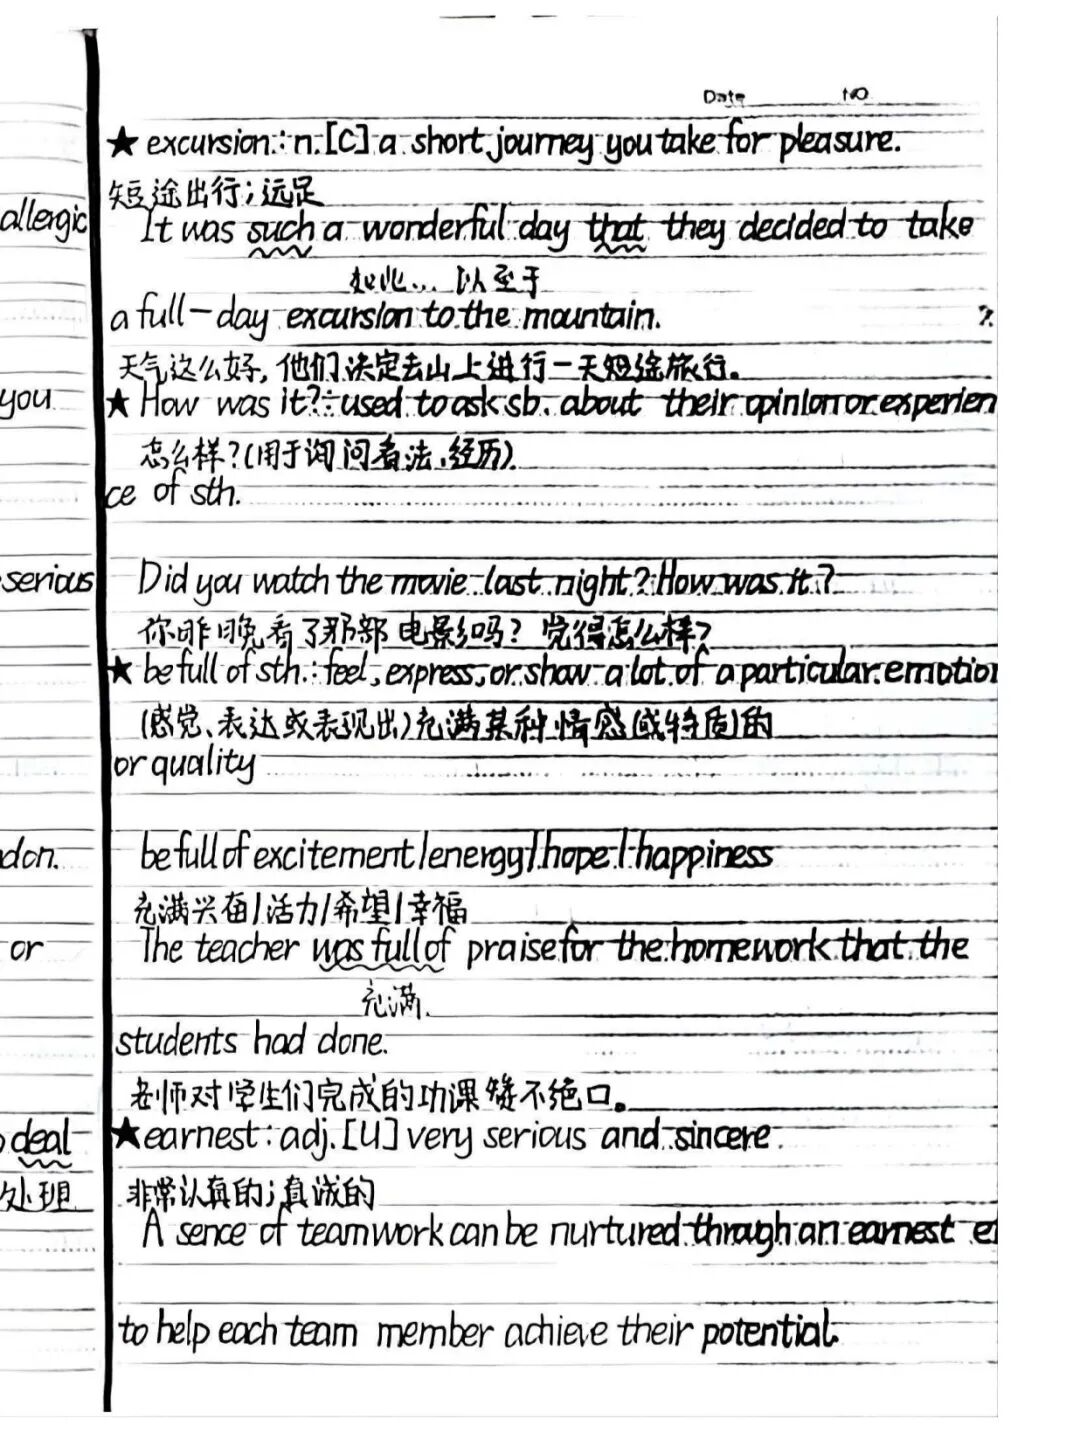 Date NO
★ excursion: n.[C] a short journey you take for pleasure.
短途出行;远足
allergic
It was such a wonderful day that they decided to take
如此... 以至于
a full-day excursion to the mountain.
?
天气这么好,他们决定去山上进行一天短途旅行。
you
★ How was it?: used to ask sb. about their opinion or experien
怎么样?(用于询问看法、经历)
ce of sth.
serious
Did you watch the movie last night? How was it?
你昨晚看了那部电影吗?觉得怎么样?
★ be full of sth.: feel, express, or show a lot of a particular emotion
(感觉、表达或表现出)充满某种情感(或特质)的
or quality
don.
be full of excitement/energy/hope/happiness
充满兴奋/活力/希望/幸福
or
The teacher was full of praise for the homework that the
充满
students had done.
老师对学生们完成的功课赞不绝口。
deal
★ earnest: adj. [U] very serious and sincere
处理
非常认真的;真诚的
A sence of teamwork can be nurtured through an earnest
to help each team member achieve their potential.